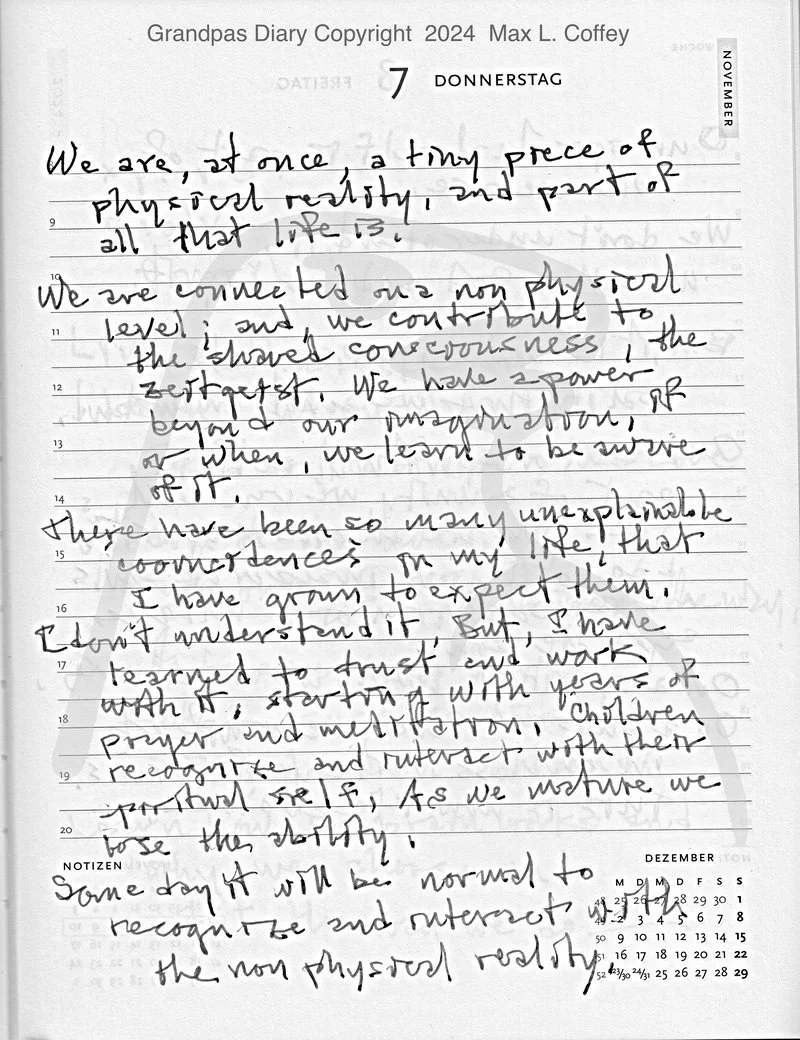 Grandpas Diary Copyright 2024 Max L. Coffey
7 DONNERSTAG
NOVEMBER
We are, at once, a tiny piece of
physical reality, and part of
9
all that life is.
10
We are connected on a non physical
11
level; and, we contribute to
the shared consciousness, the
12
zeitgeist. We have a power
beyond our imagination, if
13
or when, we learn to be aware
of it.
14
There have been so many unexplainable
15
coincidences in my life, that
I have grown to expect them.
16
I don't understand it, But, I have
17
learned to trust and work
with it, starting with years of
18
prayer and meditation. Children
19
recognize and interact with their
spiritual self, As we mature we
20
lose the ability.
NOTIZEN
DEZEMBER
Some day it will be normal to
M D M D F S S
48 25 26 27 28 29 30 1
recognize and interact with
49 2 3 4 5 6 7 8
50 9 10 11 12 13 14 15
the non physical reality.
51 16 17 18 19 20 21 22
52 23/30 24/31 25 26 27 28 29